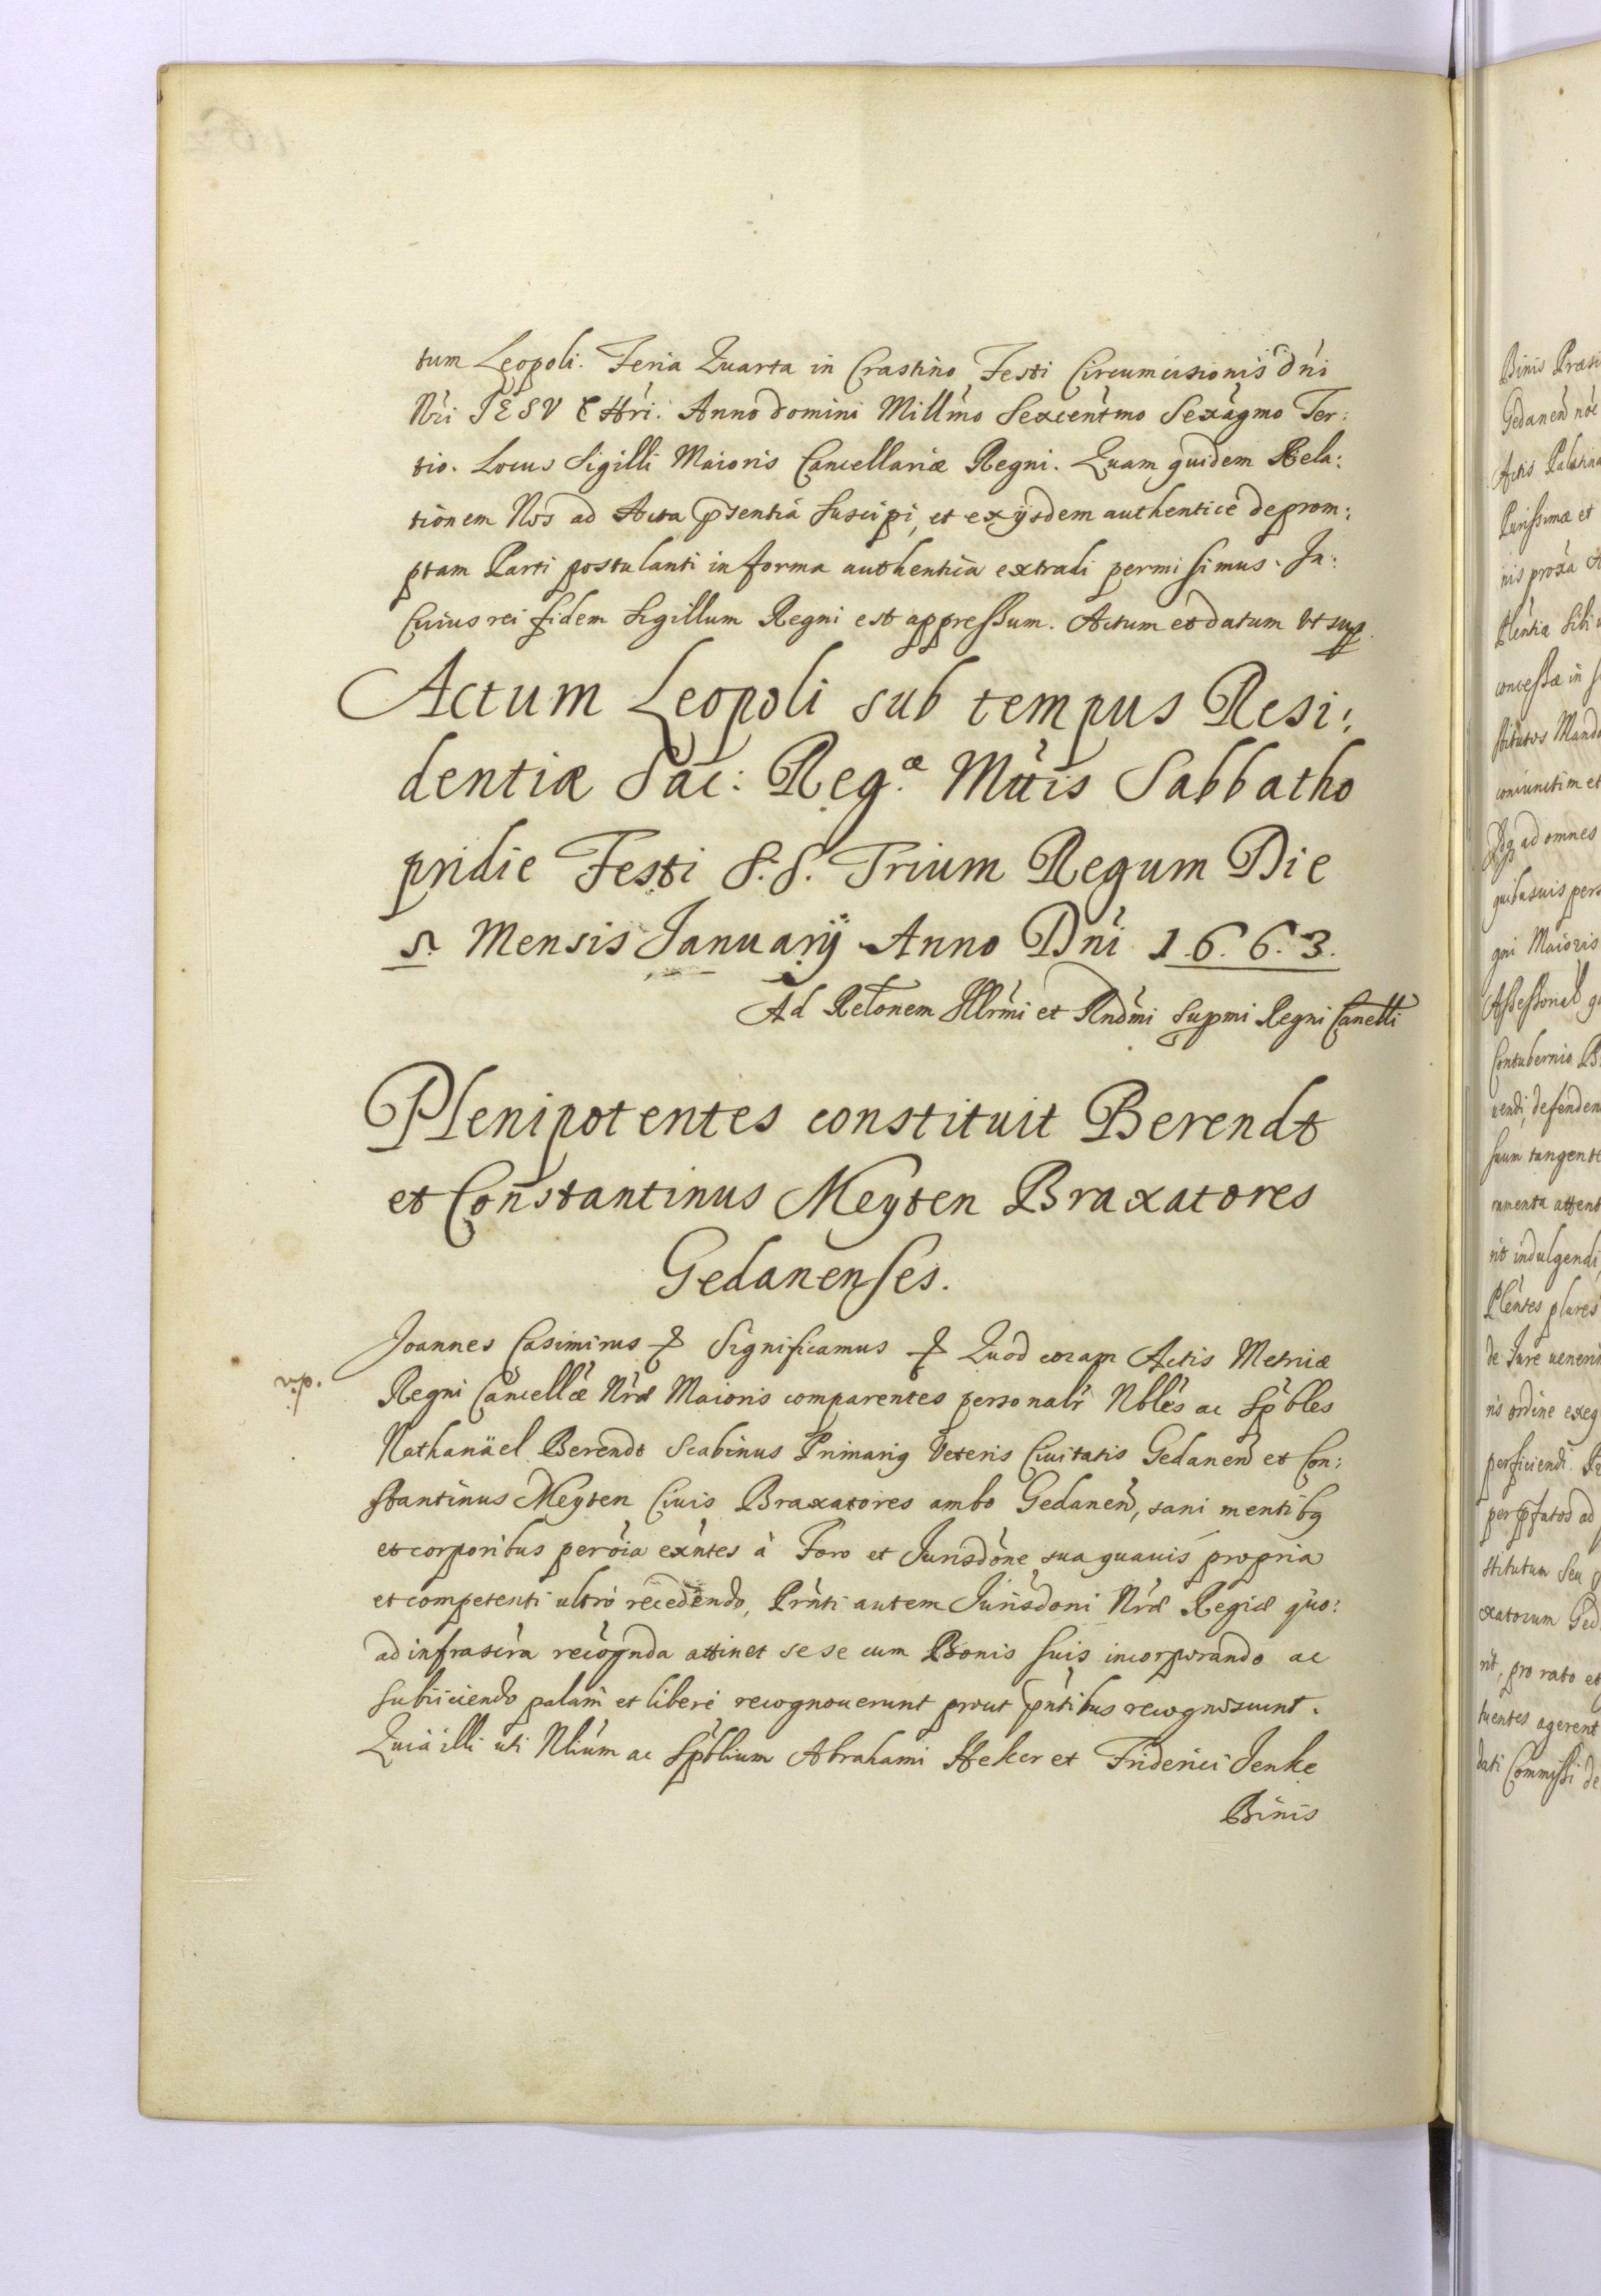 tum Leopoli. Feria Quarta in Crastino Festi Circumcisionis Dni
Nri IESV CHri. Anno Domini Millmo Sexcentmo Sexagmo Ter:
tio. Locus Sigilli Maioris Cancellariæ Regni. Quam quidem Rela:
tionem Nos ad Acta psentia suscipi, et ex ijsdem authentice deprom:
ptam Parti postulanti in forma authentica extradi permisimus. In:
Cuius rei fidem Sigillum Regni est appressum. Actum et datum Ut sup
Actum Leopoli sub tempus Resi:
dentiæ Sac: Regæ Mttis Sabbatho
pridie Festi S.S. Trium Regum Die
5. Mensis Januarÿ Anno Dni 1.6.6.3.
Ad Relonem Illrmi et Rndmi Supmi Regni Cancelli
Plenipotentes constituit Berendt
et Constantinus Meyten Braxatores
Gedanenses.
Joannes Casimirus Significamus Quod coram Actis Metricæ
v.p.
Regni Cancellæ Nræ Maioris comparentes personalr Nbles ac Spbles
Nathanäel Berendt Scabinus Primarig Veteris Ciuitatis Gedanen et Con:
stantinus Meyten Ciuis Braxatores ambo Gedanen, sani mentibg
et corporibus per oia exntes à Foro et Jurisdone sua quauis propria
et competenti ultro recedendo, Prnti autem Jurisdoni Nræ Regiæ quo:
ad infrascra recognda attinet se se cum Bonis suis incorporando ac
subijciendo palam et liberè recognouerunt prout pntibus recognoscunt.
Quia illi uti Nlium ac Spblium Abrahami Heker et Friderici Jenke
Binis
Binis
Gedanen
Actis Palatina
Purissimæ et
concessæ in
stitutos
coniunctim et
ad omnes
quibusuis
gni Maioris
Assessorial
Contubernio
uendi, defenden
suum tangent
ramenta
rit indulgendi,
Plentes plures
de Jure
ris ordine exeq
perficiendi.
stitutum seu
xatorum Ged
rit, pro rato et
tuentes agerent
dati Commissi de